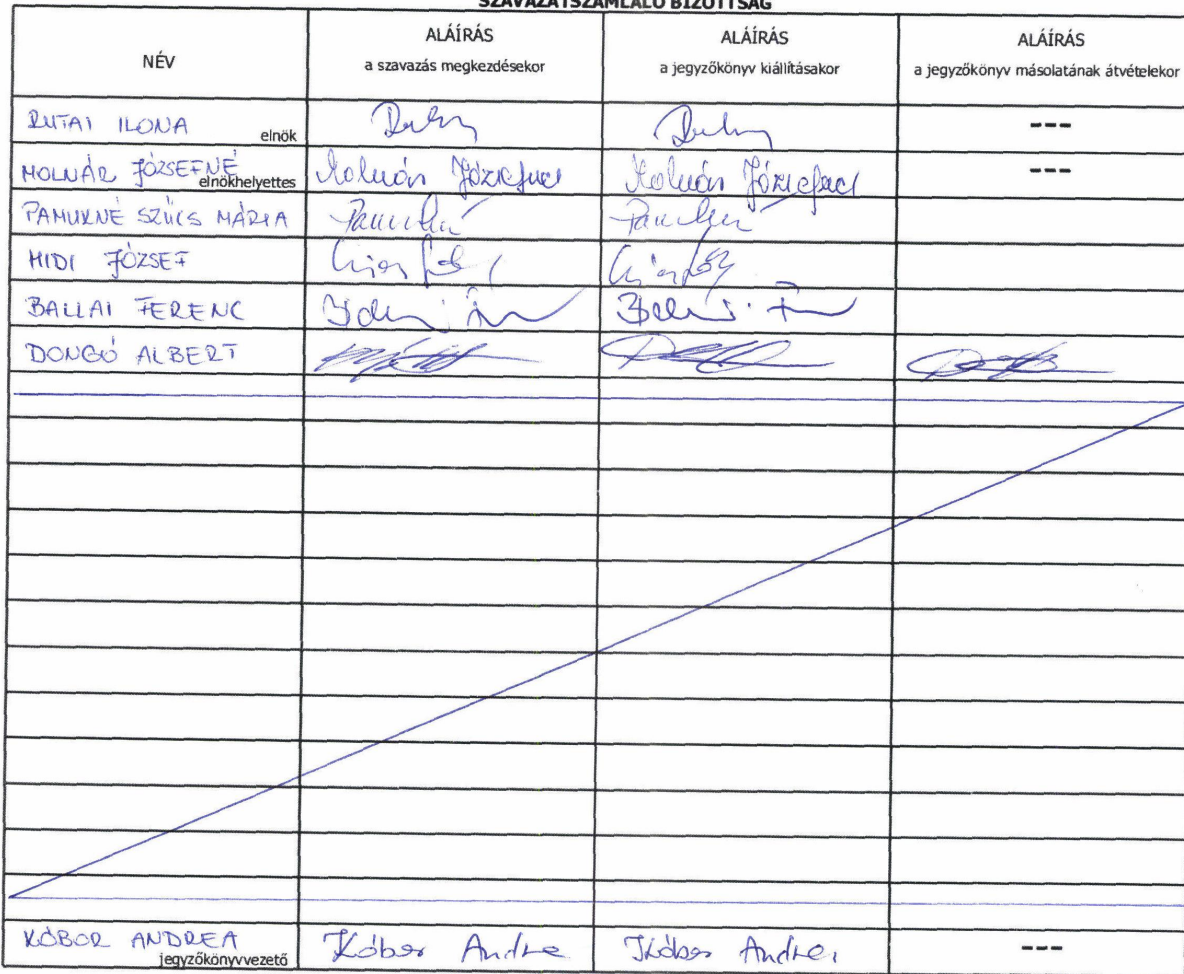 SZAVAZATSZÁMLÁLÓ BIZOTTSÁG
NÉV
ALÁÍRÁS
a szavazás megkezdésekor
ALÁÍRÁS
a jegyzőkönyv kiállításakor
ALÁÍRÁS
a jegyzőkönyv másolatának átvételekor
RUTAI ILONA elnök ---
MOLNÁR JÓZSEFNÉ elnökhelyettes Molnár Józsefné Molnár Józsefné ---
PAMUKNÉ SZŰCS MÁRIA
MIDI JÓZSEF
BALLAI FERENC
DONGÓ ALBERT
KÓBOR ANDREA jegyzőkönyvvezető Kóbor Andrea Kóbor Andrea ---